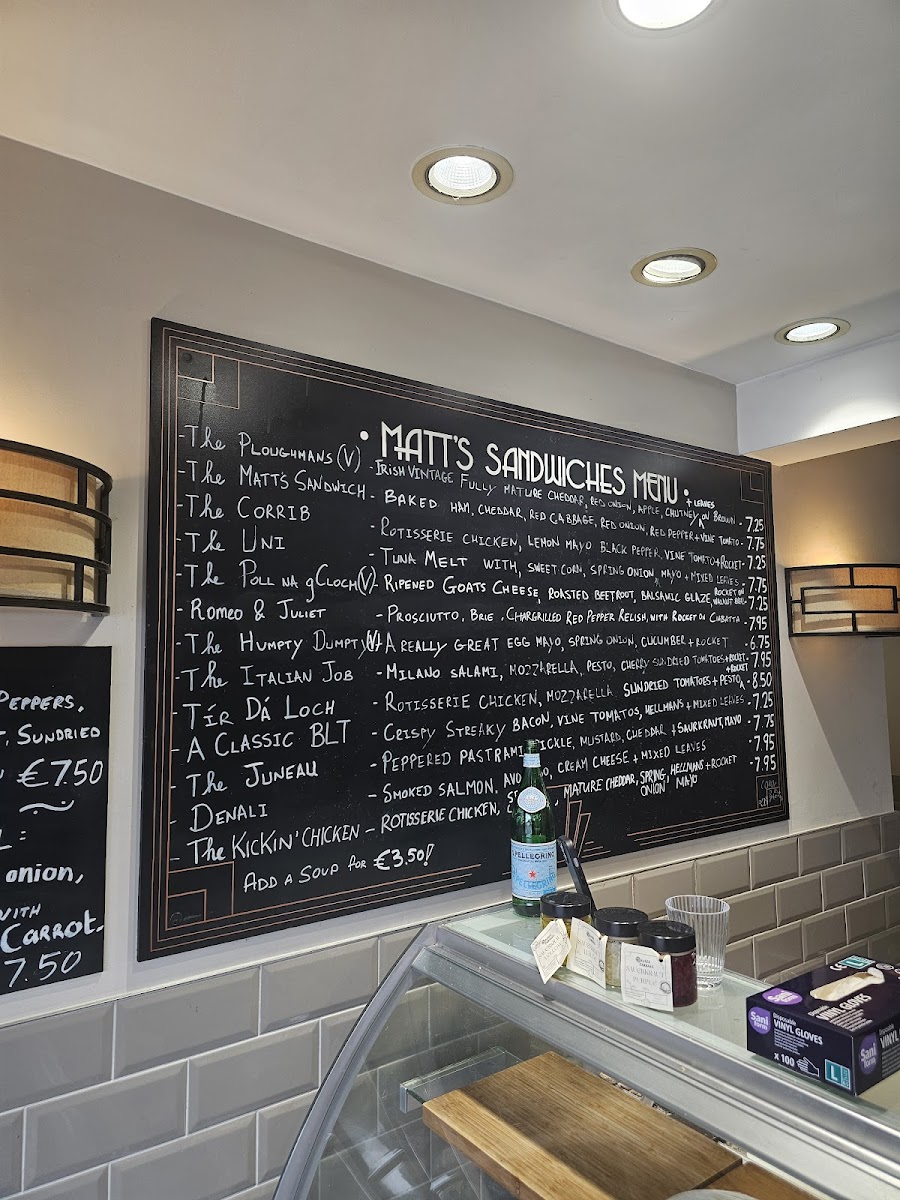 • MATT'S SANDWICHES MENU •
-The Ploughmans (V) -Irish Vintage Fully mature cheddar, red onion, apple, chutney + leaves on Brown - 7.25
-The Matt's Sandwich - Baked ham, cheddar, red cabbage, red onion, red pepper + vine tomato - 7.75
-The Corrib - Rotisserie chicken, lemon mayo black pepper, vine tomato + Rocket - 7.25
-The Uni - Tuna Melt with, sweet corn, spring onion, mayo + mixed leaves - 7.75
-The Poll na gCloch (V) - Ripened Goats Cheese, roasted beetroot, balsamic glaze, rocket on walnut bread - 7.25
- Romeo & Juliet - Prosciutto, Brie, Chargrilled Red Pepper Relish, with Rocket on Ciabatta - 7.95
-The Humpty Dumpty (V) - A really great egg mayo, spring onion, cucumber + rocket - 6.75
-The Italian Job - Milano salami, mozzarella, pesto, cherry sundried tomatoes + rocket - 7.95
-Tír Dá Loch - Rotisserie chicken, mozzarella sundried tomatoes + pesto + rocket - 8.50
- A Classic BLT - Crispy Streaky bacon, vine tomatos, hellmans + mixed leaves - 7.25
-The Juneau - Peppered pastrami, pickle, mustard, cheddar + saurkraut, mayo - 7.75
- Denali - Smoked salmon, avo, cream cheese + mixed leaves - 7.95
- The Kickin' Chicken - Rotisserie chicken, mature cheddar, spring onion, hellmans + rocket mayo - 7.95
Add a Soup for €3.50!
Peppers,
Sundried
€7.50
onion,
with
Carrot.
7.50
S.PELLEGRINO
SAUERKRAUT
Sani
Disposable
VINYL GLOVES
x 100
L
Sani
VINYL